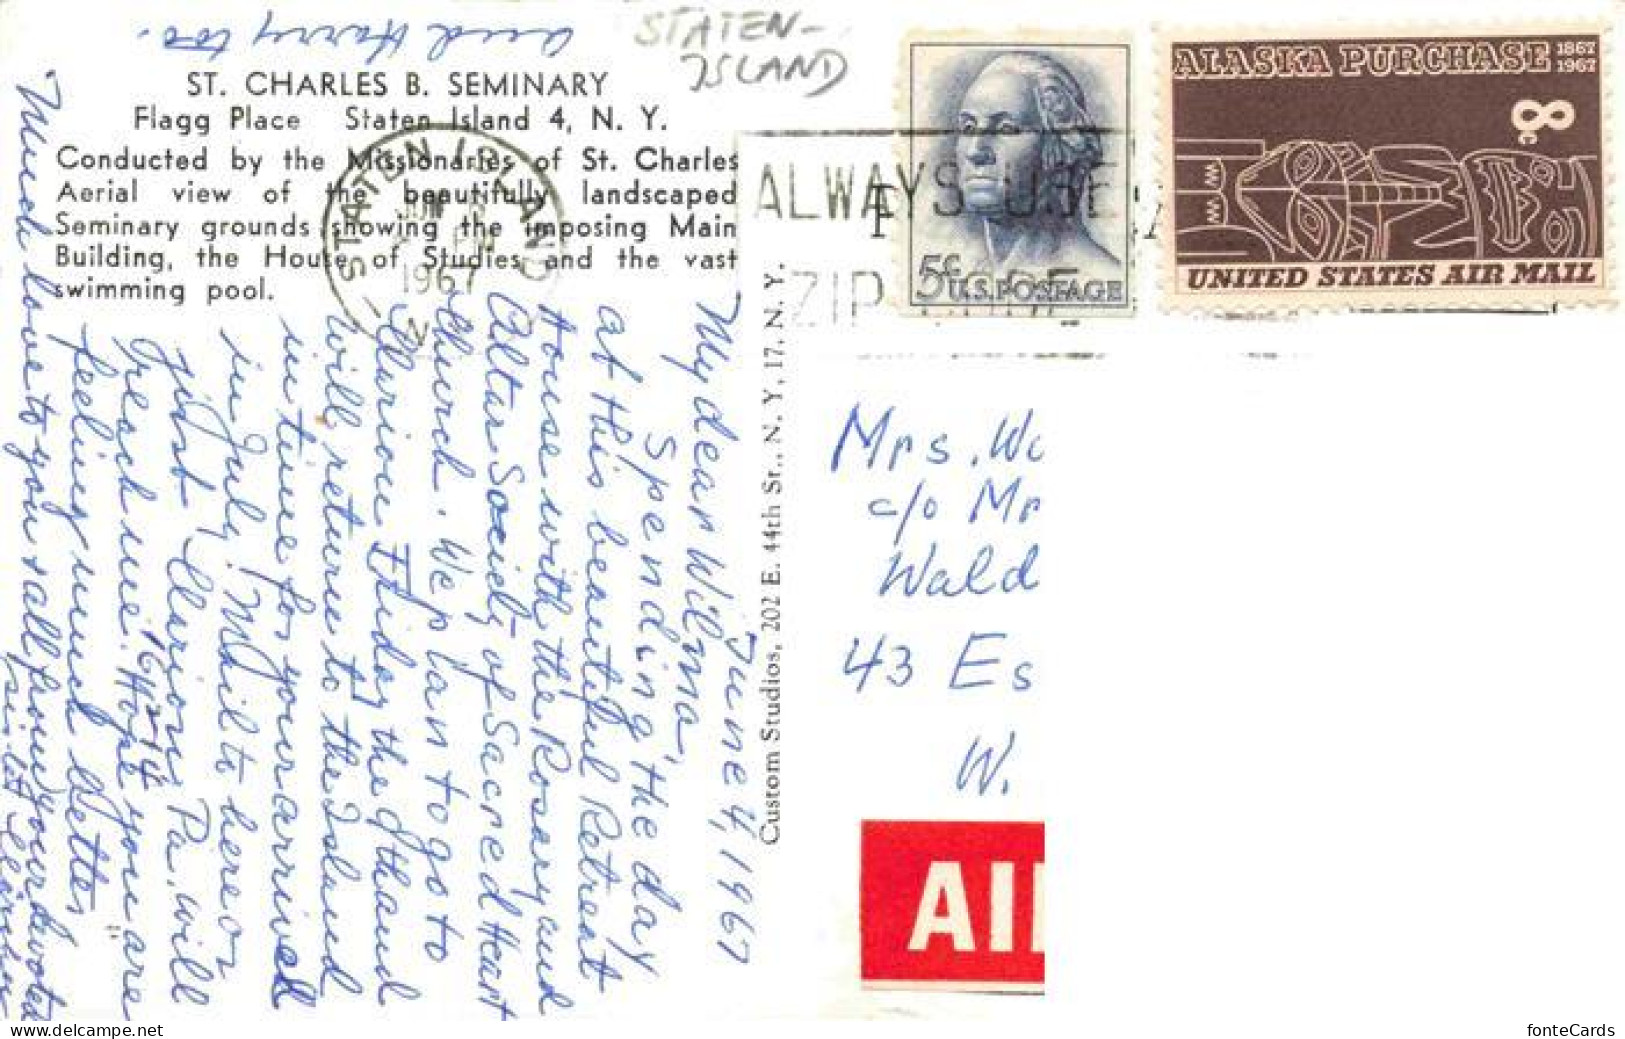 and Harry too.
STATEN-
ISLAND
ST. CHARLES B. SEMINARY
Flagg Place Staten Island 4, N. Y.
Conducted by the Missionaries of St. Charles
Aerial view of the beautifully landscaped
Seminary grounds showing the imposing Main
Building, the House of Studies and the vast
swimming pool.
STATEN ISLAND
JUN
PM
1967
N
ALWAYS USE
ZIP
5¢
U.S. POSTAGE
ALASKA PURCHASE 1867 1967
8c
UNITED STATES AIR MAIL
Custom Studios, 202 E. 44th St., N. Y. 17. N. Y.
June 4, 1967
My dear Wilma,
Spending the day
at this beautiful Retreat
House with the Rosary and
Altar Society of Sacred Heart
Church. We plan to go to
Clarion Friday the 9th and
will return to the Island
in time for your arrival
in July. Mail to here or
just Clarion, Pa. will
reach me. Hope you are
16214
feeling much better
Much love to you & all from your devoted
Mrs. Wa
c/o Mr
Wald
43 Es
W.
AI
fonteCards